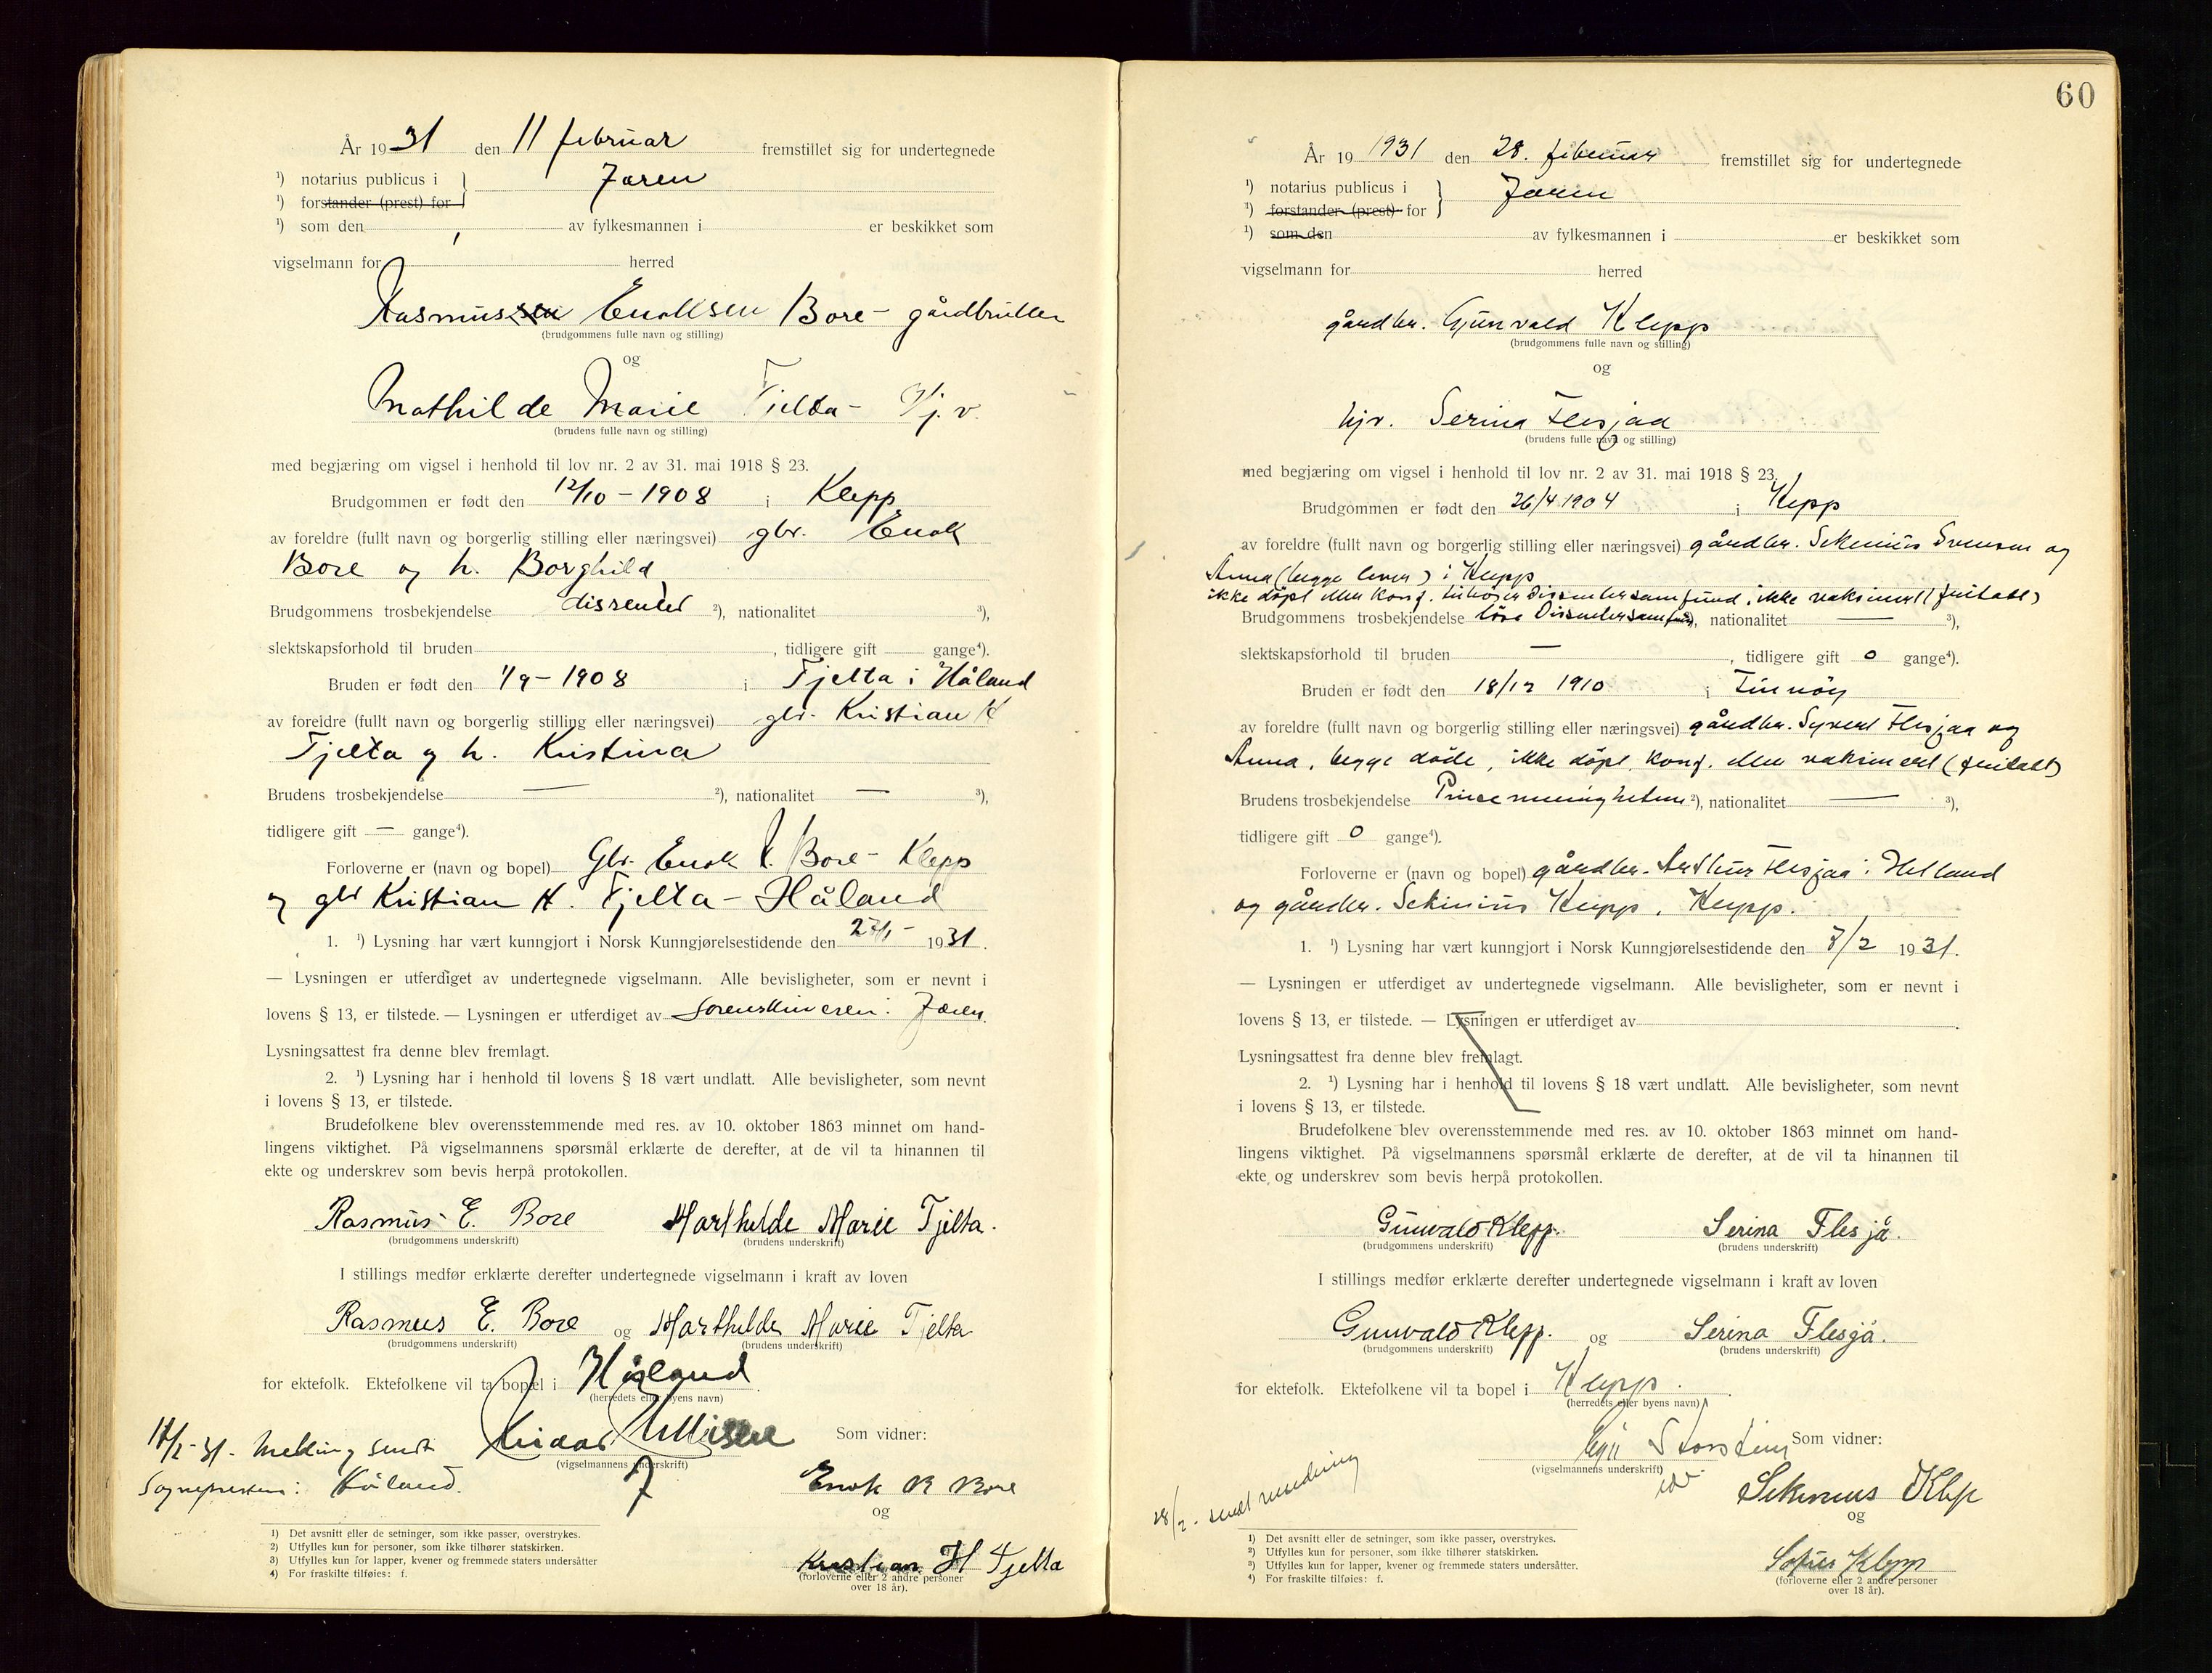 År 1931 den 11 februar fremstillet sig for undertegnede
¹) notarius publicus i Jæren
¹) forstander (prest) for
¹) som den , av fylkesmannen i er beskikket som
vigselmann for herred
Rasmussen Enoksen Bore - gårdbruker
(brudgommens fulle navn og stilling)
og
Mathilde Marie Tjelta - Hj. v.
(brudens fulle navn og stilling)
med begjæring om vigsel i henhold til lov nr. 2 av 31. mai 1918 § 23.
Brudgommen er født den 12/10 - 1908 i Klepp
av foreldre (fullt navn og borgerlig stilling eller næringsvei) gbr. Enok
Bore og h. Borghild
Brudgommens trosbekjendelse dissenter ²), nationalitet ³),
slektskapsforhold til bruden , tidligere gift gange⁴).
Bruden er født den 1/9 - 1908 i Tjelta i Håland
av foreldre (fullt navn og borgerlig stilling eller næringsvei) gbr. Kristian H
Tjelta og h. Kristina
Brudens trosbekjendelse — ²), nationalitet — ³),
tidligere gift — gange⁴).
Forloverne er (navn og bopel) Gbr. Enok R. Bore - Klepp
og gbr Kristian H. Tjelta - Håland
1. ¹) Lysning har vært kunngjort i Norsk Kunngjørelsestidende den 1931.
— Lysningen er utferdiget av undertegnede vigselmann. Alle bevisligheter, som er nevnt i
lovens § 13, er tilstede. — Lysningen er utferdiget av Sorenskriveren i Jæren.
Lysningsattest fra denne blev fremlagt.
2. ¹) Lysning har i henhold til lovens § 18 vært undlatt. Alle bevisligheter, som nevnt
i lovens § 13, er tilstede.
Brudefolkene blev overensstemmende med res. av 10. oktober 1863 minnet om hand-
lingens viktighet. På vigselmannens spørsmål erklærte de derefter, at de vil ta hinannen til
ekte og underskrev som bevis herpå protokollen.
Rasmus E. Bore Marthilde Marie Tjelta.
(brudgommens underskrift) (brudens underskrift)
I stillings medfør erklærte derefter undertegnede vigselmann i kraft av loven
Rasmus E. Bore og Marthilde Marie Tjelta
(brudgommens underskrift) (brudens underskrift)
for ektefolk. Ektefolkene vil ta bopel i Håland
(herredets eller byens navn)
Som vidner:
(vigselmannens underskrift)
-31. Melding sendt
Sognepresten i Håland.
Enok R Bore
og
Kristian H Tjelta
(forloverne eller 2 andre personer
over 18 år).
1) Det avsnitt eller de setninger, som ikke passer, overstrykes.
2) Utfylles kun for personer, som ikke tilhører statskirken.
3) Utfylles kun for lapper, kvener og fremmede staters undersåtter
4) For fraskilte tilføies: f.
60
År 19 1931 den 28. februar fremstillet sig for undertegnede
¹) notarius publicus i Jæren
¹) forstander (prest) for
¹) som den av fylkesmannen i er beskikket som
vigselmann for herred
gårdbr. Gunvald Klepp
(brudgommens fulle navn og stilling)
og
hjv. Serina Flesjaa
(brudens fulle navn og stilling)
med begjæring om vigsel i henhold til lov nr. 2 av 31. mai 1918 § 23.
Brudgommen er født den 26/4 1904 i Klepp
av foreldre (fullt navn og borgerlig stilling eller næringsvei) gårdbr. Sekinius Svensen og
Anna (begge lever) i Klepp
ikke döpt eller konf. tilhører Dissentersamfund, ikke vaksinert (fritatt)
Brudgommens trosbekjendelse Dissentersamfund ²), nationalitet — ³),
slektskapsforhold til bruden — , tidligere gift 0 gange⁴).
Bruden er født den 18/12 1910 i Finnöy
av foreldre (fullt navn og borgerlig stilling eller næringsvei) gårdbr. Syvert Flesjaa og
Anna, begge døde, ikke döpt, konf. eller vaksinert (fritatt)
Brudens trosbekjendelse ²), nationalitet — ³),
tidligere gift 0 gange⁴).
Forloverne er (navn og bopel) gårdbr. Arthur Flesjaa i Helland
og gårdbr. Sekinius Klepp, Klepp.
1. ¹) Lysning har vært kunngjort i Norsk Kunngjørelsestidende den 7/2 1931.
— Lysningen er utferdiget av undertegnede vigselmann. Alle bevisligheter, som er nevnt i
lovens § 13, er tilstede. — Lysningen er utferdiget av .
Lysningsattest fra denne blev fremlagt.
2. ¹) Lysning har i henhold til lovens § 18 vært undlatt. Alle bevisligheter, som nevnt
i lovens § 13, er tilstede.
Brudefolkene blev overensstemmende med res. av 10. oktober 1863 minnet om hand-
lingens viktighet. På vigselmannens spørsmål erklærte de derefter, at de vil ta hinannen til
ekte og underskrev som bevis herpå protokollen.
Gunvald Klepp. Serina Flesjå.
(brudgommens underskrift) (brudens underskrift)
I stillings medfør erklærte derefter undertegnede vigselmann i kraft av loven
Gunvald Klepp. og Serina Flesjå.
(brudgommens underskrift) (brudens underskrift)
for ektefolk. Ektefolkene vil ta bopel i Klepp.
(herredets eller byens navn)
Storstein Som vidner:
(vigselmannens underskrift)
28/2. sendt melding
Sekinius Klep
og
Sofus Klepp
(forloverne eller 2 andre personer
over 18 år).
1) Det avsnitt eller de setninger, som ikke passer, overstrykes.
2) Utfylles kun for personer, som ikke tilhører statskirken.
3) Utfylles kun for lapper, kvener og fremmede staters undersåtter.
4) For fraskilte tilføies: f.